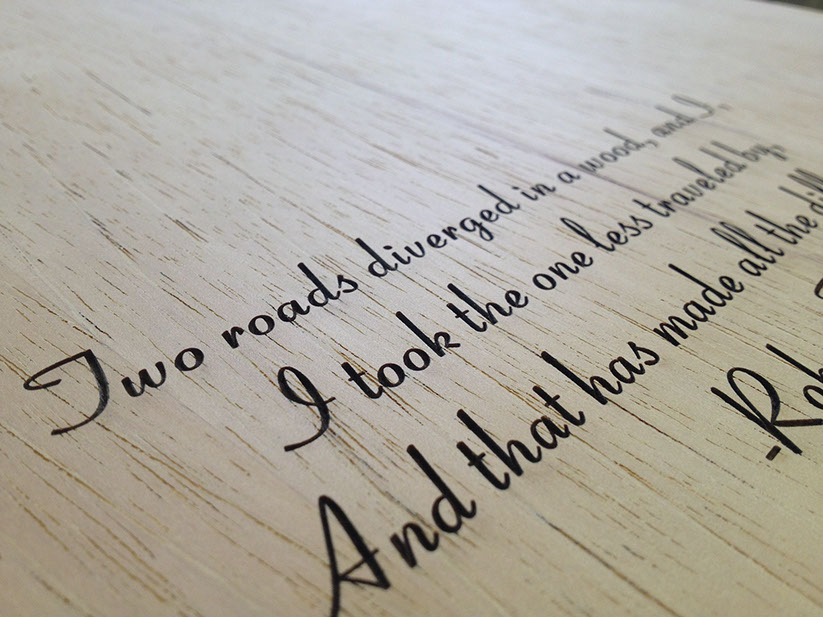 Two roads diverged in a wood, and I,
I took the one less traveled by,
And that has made all the